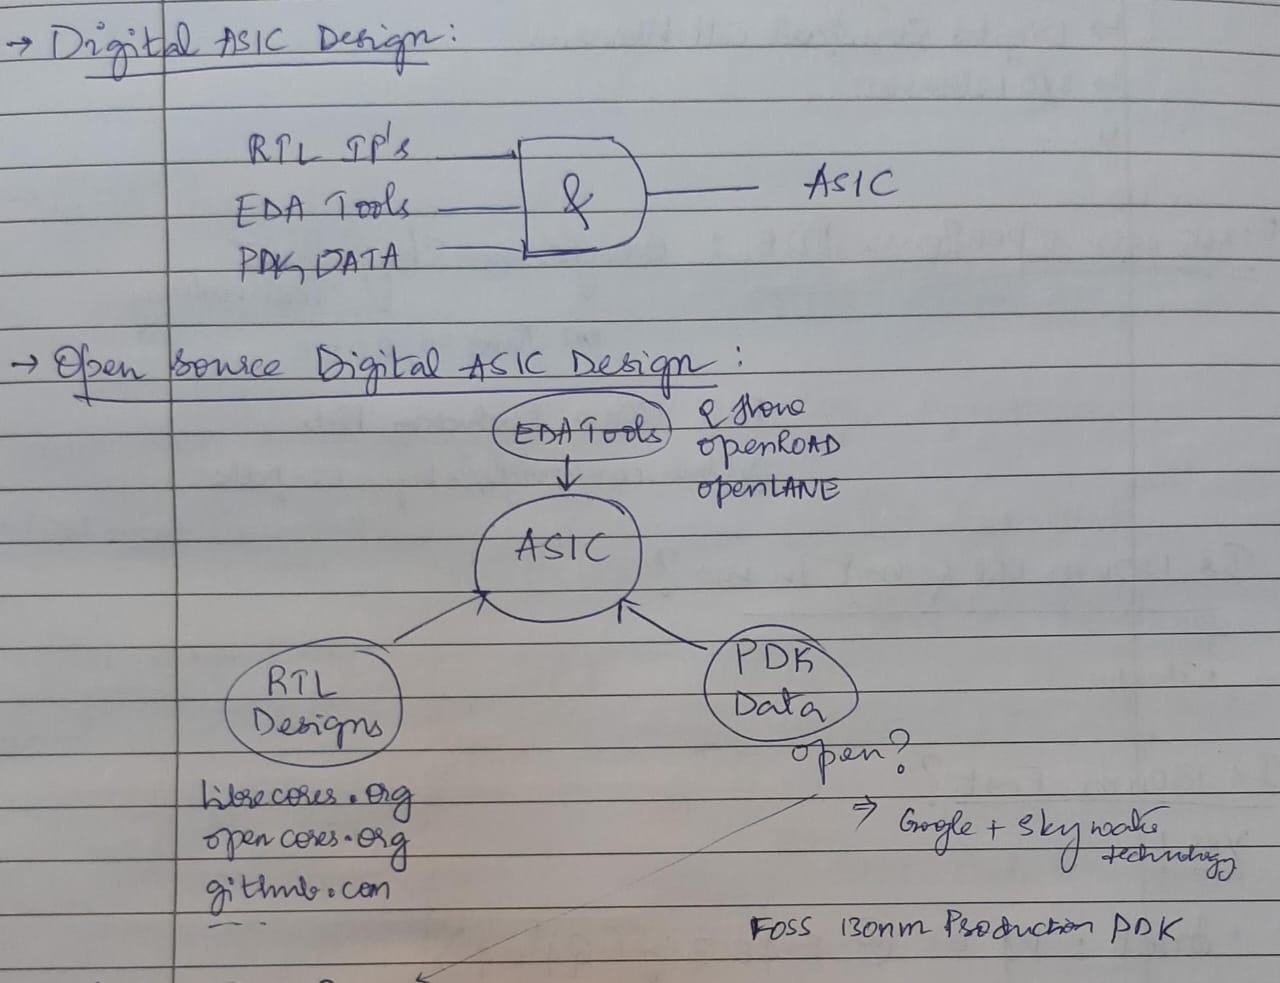 → Digital ASIC Design:
RTL IP's
EDA Tools
PDK DATA
&
ASIC
→ Open source Digital ASIC Design:
EDA Tools
openROAD
openLANE
ASIC
RTL
Designs
PDK
Data
open?
librecores.org
opencores.org
github.com
⇒ Google + Skywater
technology
FOSS 130nm Production PDK